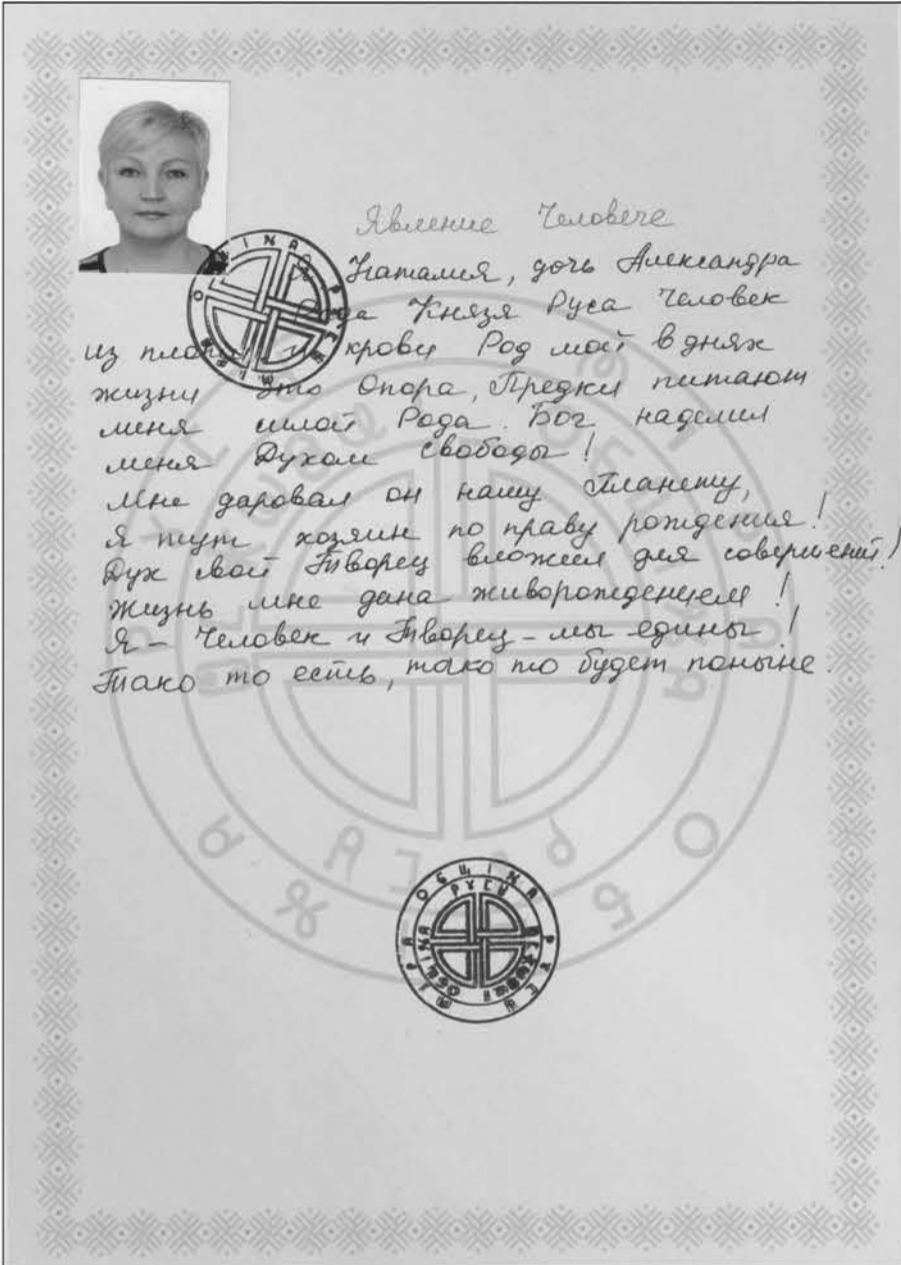 Явление Человече
Я Наталия, дочь Александра
Рода Князя Руса Человек
из плоти и крови Род мой в днях
жизни это Опора, Предки питают
меня силой Рода. Бог наделил
меня Духом свободы!
Мне даровал он нашу Планету,
Я тут хозяин по праву рождения!
Дух свой Творец вложил для совершений!
Жизнь мне дана живорождением!
Я – Человек и Творец – мы едины!
Тако то есть, тако то будет поныне.